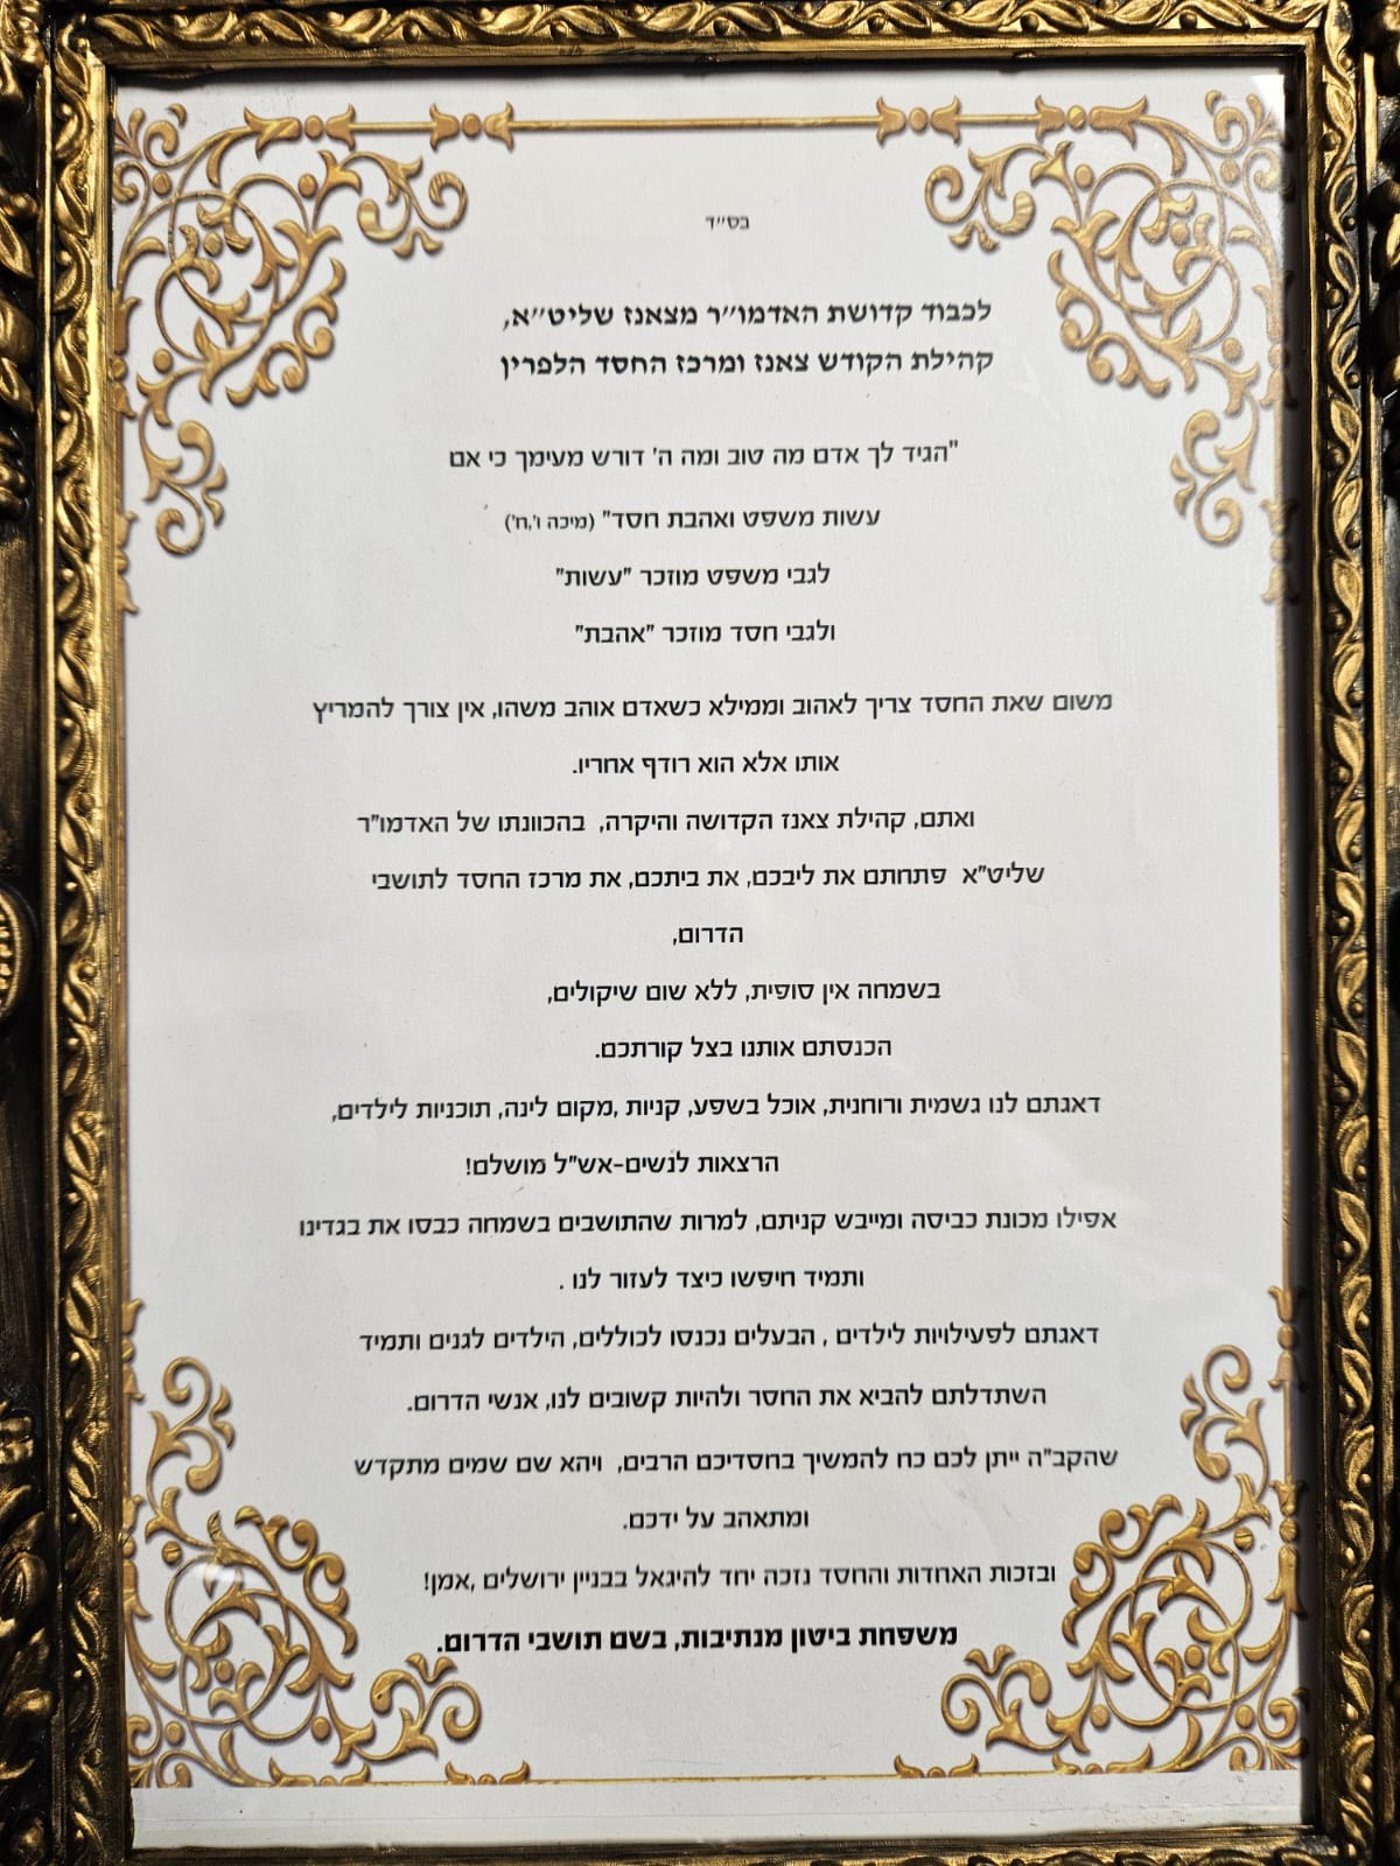 בס״ד
לכבוד קדושת האדמו״ר מצאנז שליט״א,
קהילת הקודש צאנז ומרכז החסד הלפרין
"הגיד לך אדם מה טוב ומה ה' דורש מעימך כי אם
עשות משפט ואהבת חסד" (מיכה ו',ח')
לגבי משפט מוזכר "עשות"
ולגבי חסד מוזכר "אהבת"
משום שאת החסד צריך לאהוב וממילא כשאדם אוהב משהו, אין צורך להמריץ
אותו אלא הוא רודף אחריו.
ואתם, קהילת צאנז הקדושה והיקרה, בהכוונתו של האדמו"ר
שליט"א פתחתם את ליבכם, את ביתכם, את מרכז החסד לתושבי
הדרום,
בשמחה אין סופית, ללא שום שיקולים,
הכנסתם אותנו בצל קורתכם.
דאגתם לנו גשמית ורוחנית, אוכל בשפע, קניות ,מקום לינה, תוכניות לילדים,
הרצאות לנשים-אש"ל מושלם!
אפילו מכונת כביסה ומייבש קניתם, למרות שהתושבים בשמחה כבסו את בגדינו
ותמיד חיפשו כיצד לעזור לנו .
דאגתם לפעילויות לילדים , הבעלים נכנסו לכוללים, הילדים לגנים ותמיד
השתדלתם להביא את החסר ולהיות קשובים לנו, אנשי הדרום.
שהקב"ה ייתן לכם כח להמשיך בחסדיכם הרבים, ויהא שם שמים מתקדש
ומתאהב על ידכם.
ובזכות האחדות והחסד נזכה יחד להיגאל בבניין ירושלים ,אמן!
משפחת ביטון מנתיבות, בשם תושבי הדרום.